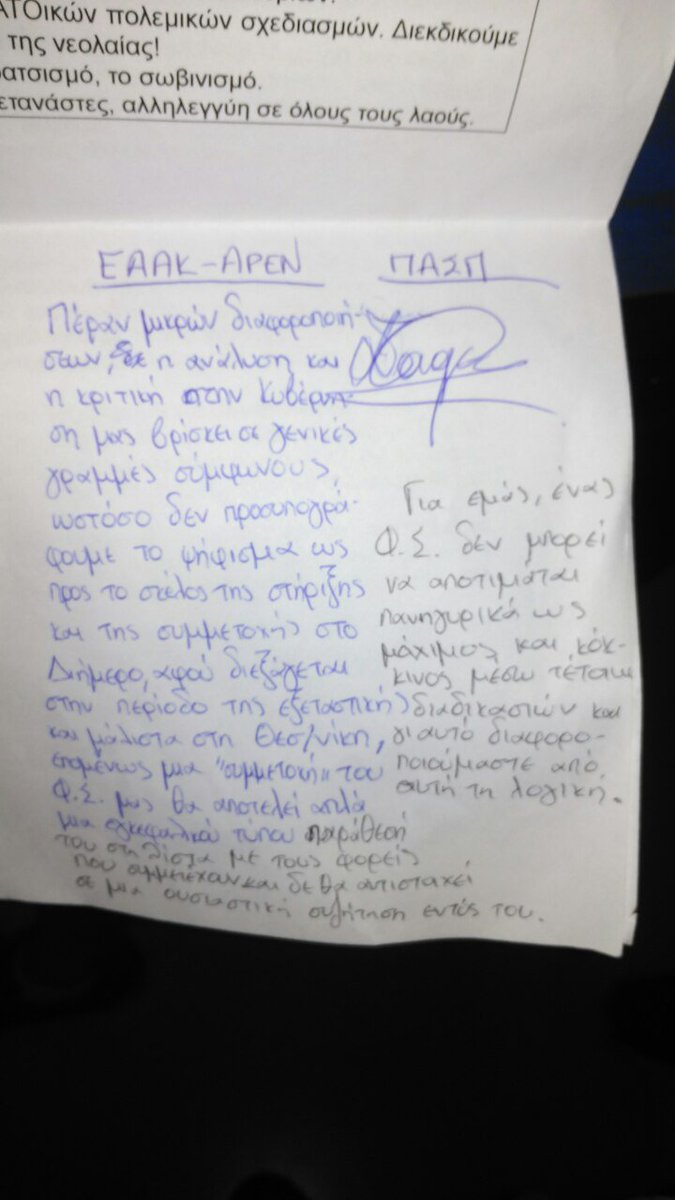 ΑΤΟικών πολεμικών σχεδιασμών. Διεκδικούμε
της νεολαίας!
ατσισμό, το σωβινισμό.
ετανάστες, αλληλεγγύη σε όλους τους λαούς.
ΕΑΑΚ-ΑΡΕΝ
Πέραν μικρών διαφοροποιή-
σεων, η ανάλυση και
η κριτική στην Κυβέρνη-
ση μας βρίσκει σε γενικές
γραμμές σύμφωνους,
ωστόσο δεν προσυπογρά-
φουμε το ψήφισμα ως
προς το σκέλος της στήριξης
και της συμμετοχής στο
Διήμερο, αφού διεξάγεται
στην περίοδο της εξεταστικής
και μάλιστα στη Θεσ/νίκη,
επομένως μια "συμμετοχή" του
Φ.Σ. μας θα αποτελεί απλά
μια εγκεφαλικού τύπου παράθεσή
του στη λίστα με τους φορείς
που συμμετείχαν και δε θα αντιστοιχεί
σε μια ουσιαστική συζήτηση εντός του.
Για εμάς, ένας
Φ.Σ. δεν μπορεί
να αποτιμάται
πανηγυρικά ως
μάχιμος και κόκ-
κινος μέσω τέτοιων
διαδικασιών και
γι αυτό διαφορο-
ποιούμαστε από
αυτή τη λογική.
ΠΑΣΠ